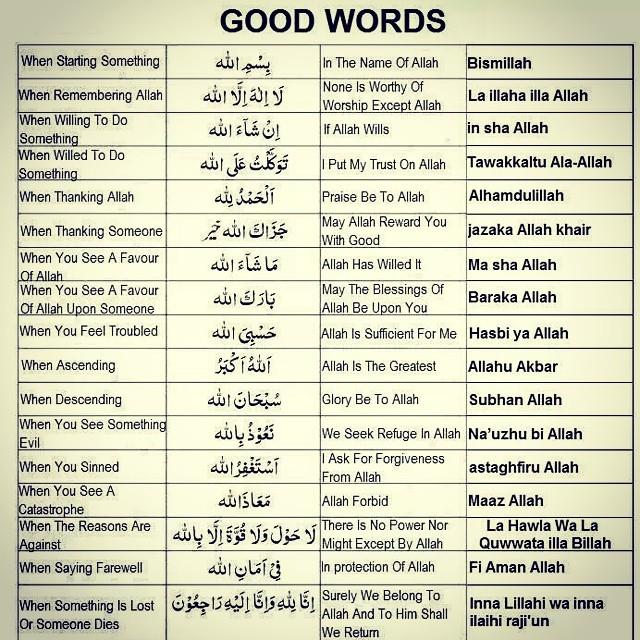 GOOD WORDS
When Starting Something
بِسْمِ الله
In The Name Of Allah
Bismillah
When Remembering Allah
لَا اِلٰهَ اِلَّا الله
None Is Worthy Of
Worship Except Allah
La illaha illa Allah
When Willing To Do
Something
اِنْ شَآءَ الله
If Allah Wills
in sha Allah
When Willed To Do
Something
تَوَكَّلْتُ عَلَى الله
I Put My Trust On Allah
Tawakkaltu Ala-Allah
When Thanking Allah
اَلْحَمْدُ لِلّٰه
Praise Be To Allah
Alhamdulillah
When Thanking Someone
جَزَاكَ الله خَيْر
May Allah Reward You
With Good
jazaka Allah khair
When You See A Favour
Of Allah
مَا شَآءَ الله
Allah Has Willed It
Ma sha Allah
When You See A Favour
Of Allah Upon Someone
بَارَكَ الله
May The Blessings Of
Allah Be Upon You
Baraka Allah
When You Feel Troubled
حَسْبِىَ الله
Allah Is Sufficient For Me
Hasbi ya Allah
When Ascending
اَللهُ اَكْبَرُ
Allah Is The Greatest
Allahu Akbar
When Descending
سُبْحَانَ الله
Glory Be To Allah
Subhan Allah
When You See Something
Evil
نَعُوْذُ بِالله
We Seek Refuge In Allah
Na'uzhu bi Allah
When You Sinned
اَسْتَغْفِرُ الله
I Ask For Forgiveness
From Allah
astaghfiru Allah
When You See A
Catastrophe
مَعَاذَ الله
Allah Forbid
Maaz Allah
When The Reasons Are
Against
لَا حَوْلَ وَلَا قُوَّةَ اِلَّا بِالله
There Is No Power Nor
Might Except By Allah
La Hawla Wa La
Quwwata illa Billah
When Saying Farewell
فِىْ اَمَانِ الله
In protection Of Allah
Fi Aman Allah
When Something Is Lost
Or Someone Dies
اِنَّا لِلّٰهِ وَاِنَّا اِلَيْهِ رَاجِعُوْنَ
Surely We Belong To
Allah And To Him Shall
We Return
Inna Lillahi wa inna
ilaihi raji'un